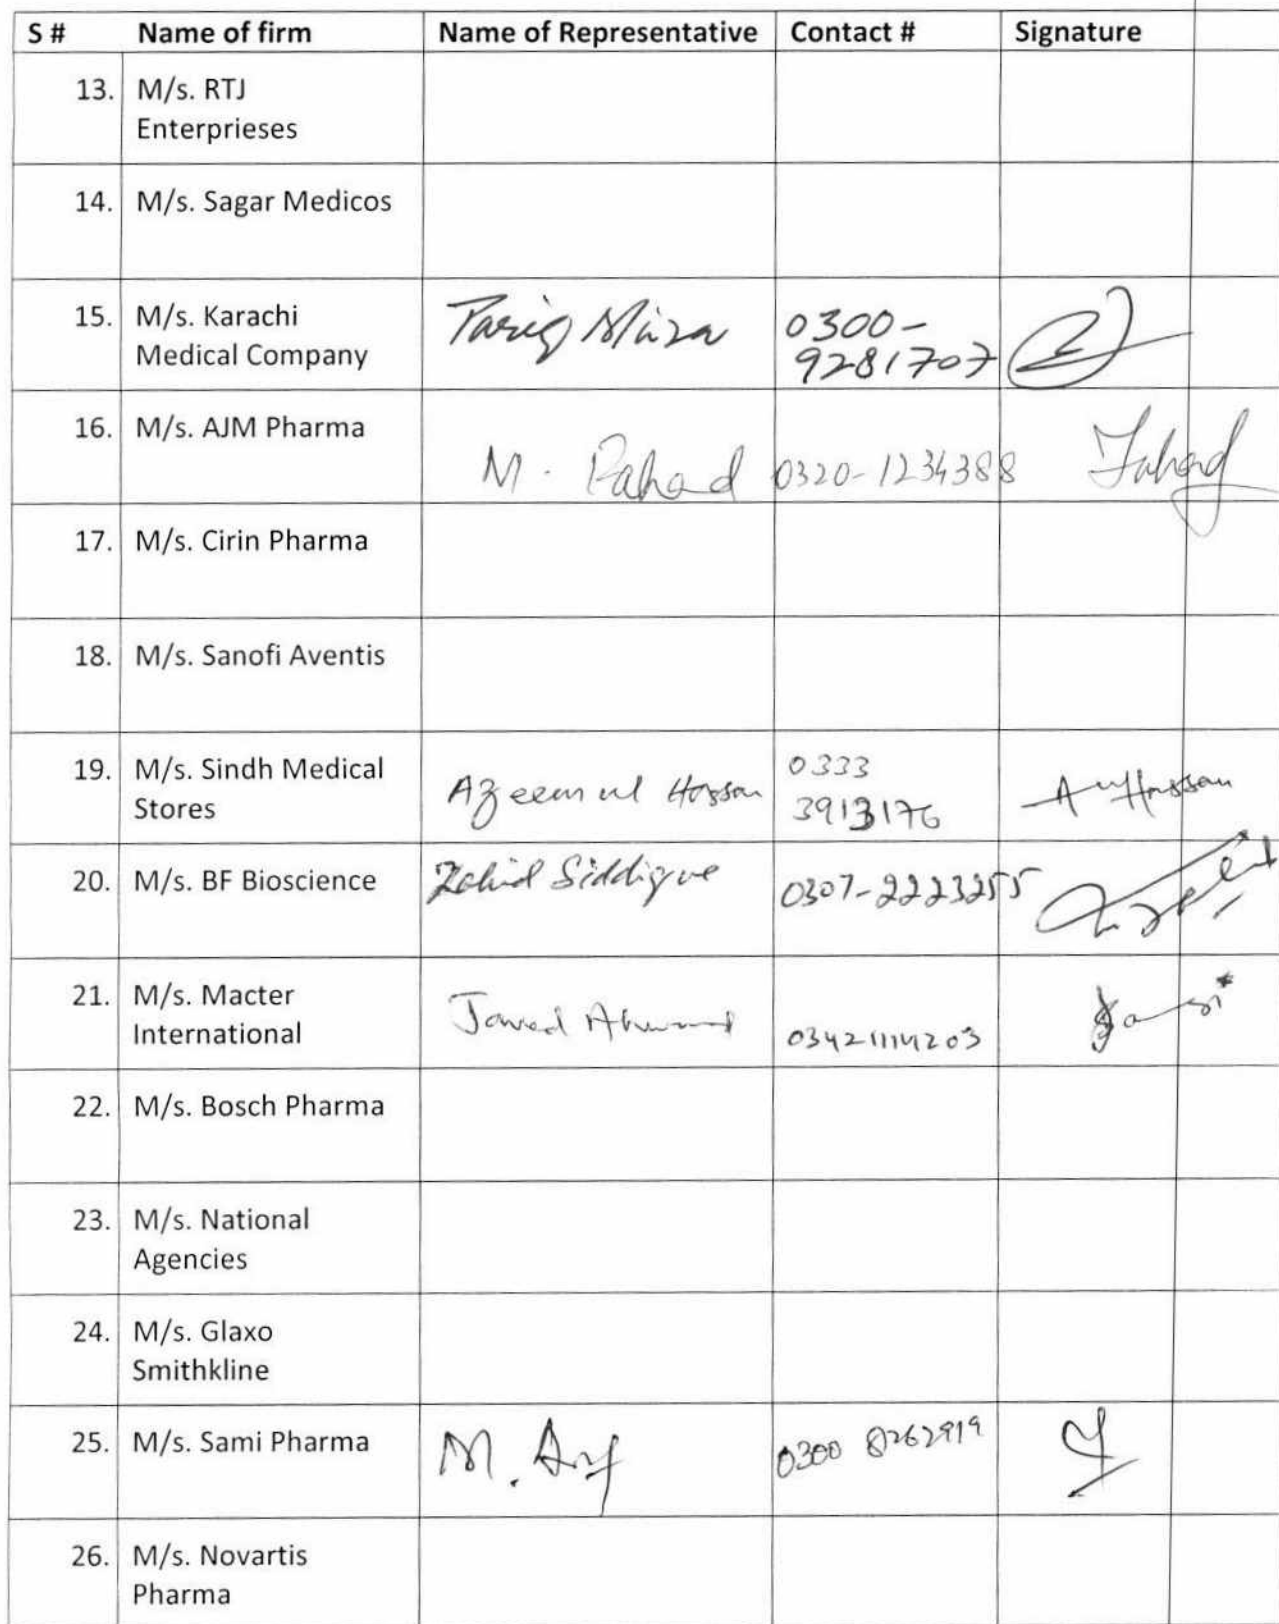 S # Name of firm Name of Representative Contact # Signature
13. M/s. RTJ
Enterprieses
14. M/s. Sagar Medicos
15. M/s. Karachi
Medical Company
Tariq Mirza
0300-
9281707
16. M/s. AJM Pharma
M. Fahad 0320-1234388 Fahad
17. M/s. Cirin Pharma
18. M/s. Sanofi Aventis
19. M/s. Sindh Medical
Stores
Azeem ul Hassan
0333
3913176
20. M/s. BF Bioscience
Zahid Siddique
0307-2223255
21. M/s. Macter
International
Javed Ahmed
03421114203
22. M/s. Bosch Pharma
23. M/s. National
Agencies
24. M/s. Glaxo
Smithkline
25. M/s. Sami Pharma
M.
0300 8262919
26. M/s. Novartis
Pharma